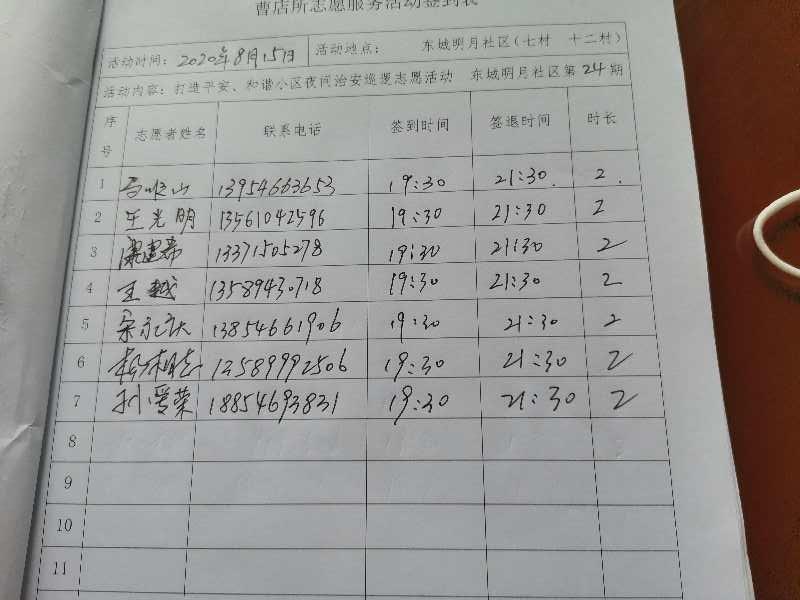 曹店所志愿服务活动签到表
活动时间: 2020年8月15日 活动地点: 东城明月社区(七村 十二村)
活动内容: 打造平安、和谐小区夜间治安巡逻志愿活动 东城明月社区第24期
序号 志愿者姓名 联系电话 签到时间 签退时间 时长
1 13954663653 19:30 21:30 2
2 王光明 13561042596 19:30 21:30 2
3 13371505278 19:30 21:30 2
4 王越 13589430718 19:30 21:30 2
5 13854661906 19:30 21:30 2
6 13589992506 19:30 21:30 2
7 刘爱荣 18854693831 19:30 21:30 2
8
9
10
11